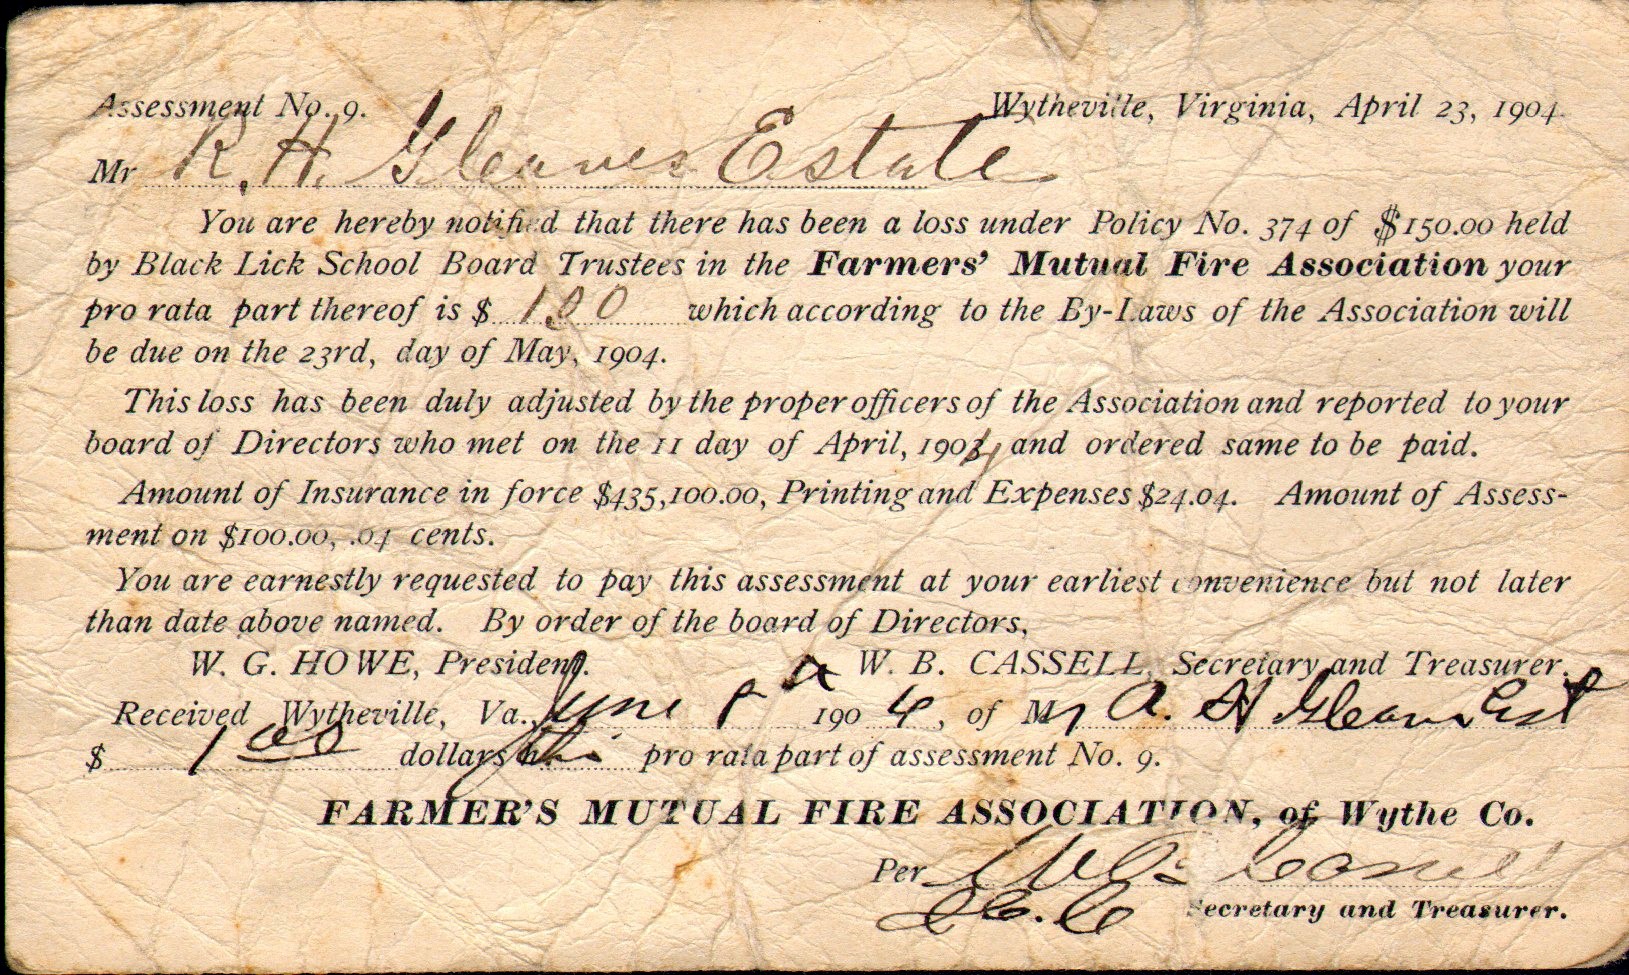 Assessment No. 9. Wytheville, Virginia, April 23, 1904.
Mr R. H. Gleaves Estate
You are hereby notified that there has been a loss under Policy No. 374 of $150.00 held
by Black Lick School Board Trustees in the Farmers' Mutual Fire Association your
pro rata part thereof is $ 1.00 which according to the By-Laws of the Association will
be due on the 23rd, day of May, 1904.
This loss has been duly adjusted by the proper officers of the Association and reported to your
board of Directors who met on the 11 day of April, 1904, and ordered same to be paid.
Amount of Insurance in force $435,100.00, Printing and Expenses $24.04. Amount of Assess-
ment on $100.00, .04 cents.
You are earnestly requested to pay this assessment at your earliest convenience but not later
than date above named. By order of the board of Directors,
W. G. HOWE, President. W. B. CASSELL, Secretary and Treasurer.
Received Wytheville, Va., June 1904, of Mr H Gleaves Est
$ 1.00 dollars pro rata part of assessment No. 9.
FARMER'S MUTUAL FIRE ASSOCIATION, of Wythe Co.
Per W B Cassell
Secretary and Treasurer.